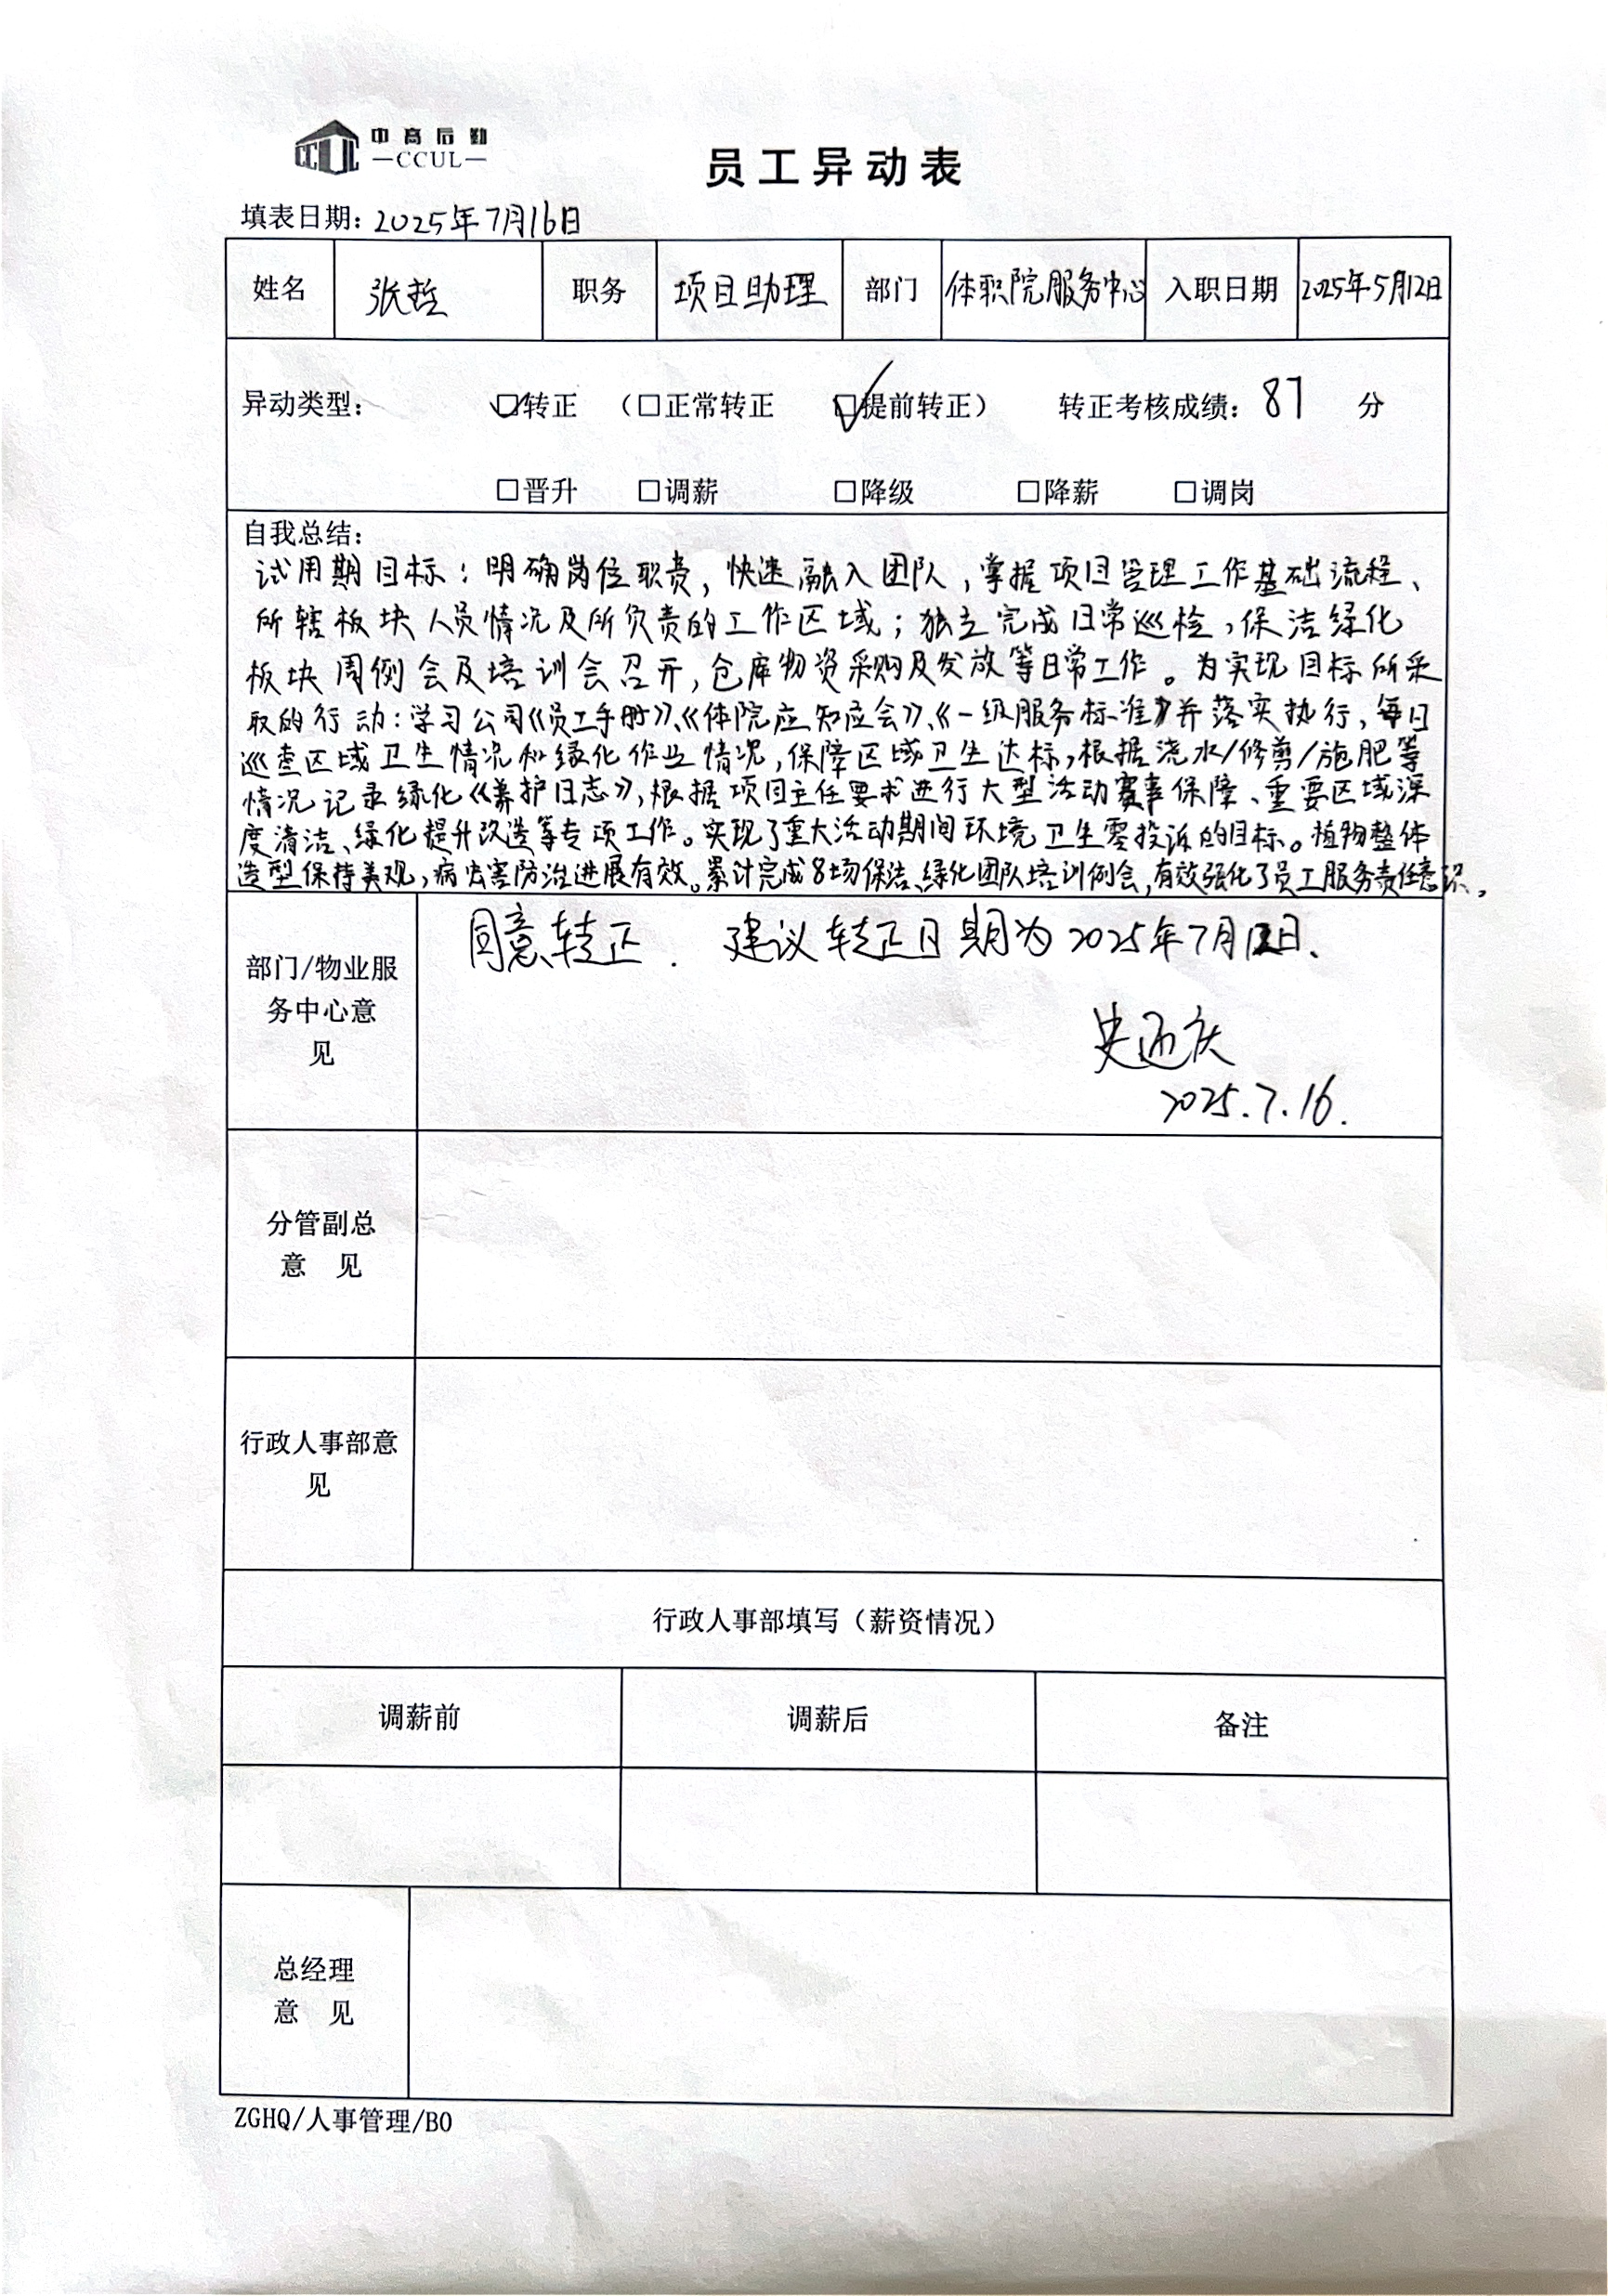 中高后勤
CCUL
员工异动表
填表日期：2025年7月16日
姓名 张哲 职务 项目助理 部门 体职院服务中心 入职日期 2025年5月12日
异动类型： ☑转正 （□正常转正 ☑提前转正） 转正考核成绩：87 分
□晋升 □调薪 □降级 □降薪 □调岗
自我总结：
试用期目标：明确岗位职责，快速融入团队，掌握项目管理工作基础流程、
所辖板块人员情况及所负责的工作区域；独立完成日常巡检，保洁绿化
板块周例会及培训会召开，仓库物资采购及发放等日常工作。为实现目标所采
取的行动：学习公司《员工手册》、《体院应知应会》、《一级服务标准》并落实执行，每日
巡查区域卫生情况和绿化作业情况，保障区域卫生达标，根据浇水/修剪/施肥等
情况记录绿化《养护日志》，根据项目主任要求进行大型活动赛事保障、重要区域深
度清洁、绿化提升改造等专项工作。实现了重大活动期间环境卫生零投诉的目标。植物整体
造型保持美观，病虫害防治进展有效。累计完成8场保洁、绿化团队培训例会，有效强化了员工服务责任意识。
部门/物业服
务中心意
见
同意转正． 建议转正日期为2025年7月12日．
2025.7.16.
分管副总
意 见
行政人事部意
见
行政人事部填写（薪资情况）
调薪前 调薪后 备注
总经理
意 见
ZGHQ/人事管理/B0